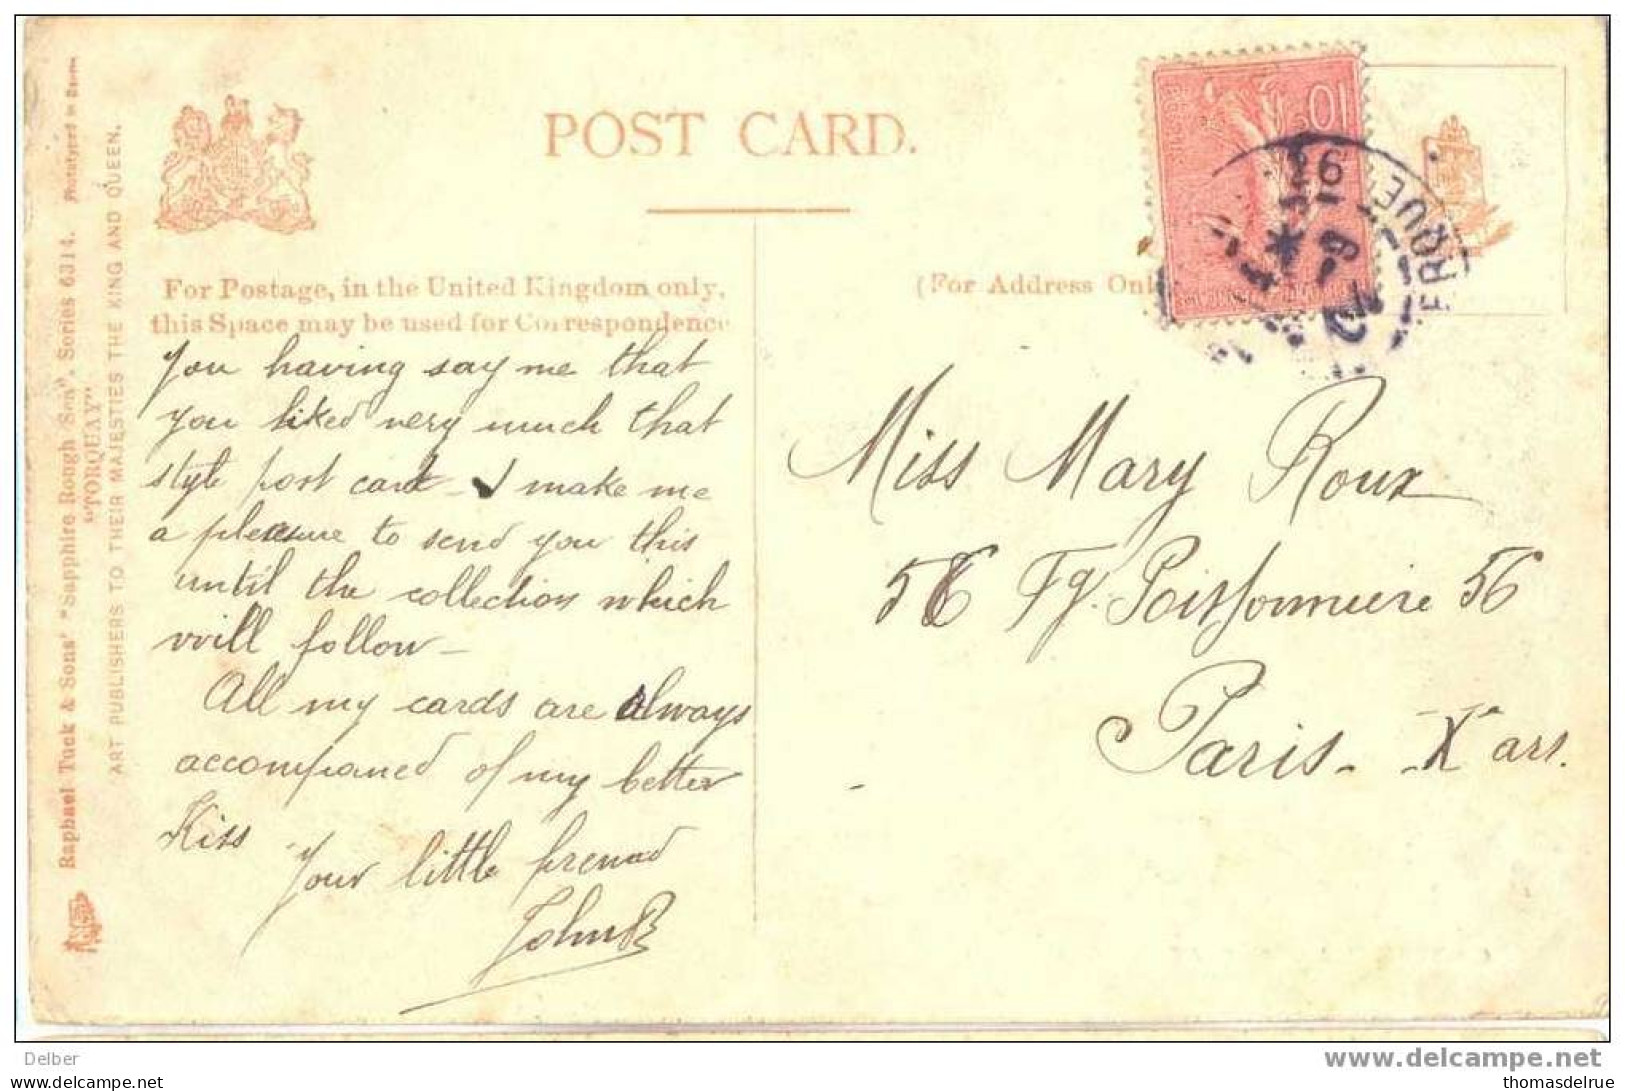 POST CARD.
For Postage, in the United Kingdom only,
this Space may be used for Correspondence
(For Address Only
Raphael Tuck & Sons' "Sapphire Rough Sea". Series 6314.
"TORQUAY"
ART PUBLISHERS TO THEIR MAJESTIES THE KING AND QUEEN.
10
You having say me that
you liked very much that
style post card – I make me
a pleasure to send you this
until the collection which
will follow –
All my cards are always
accompaned of my better
Kiss
Your little frenad
John B
Miss Mary Roux
56 Fg. Poissonnière 56
Paris – X arr.
Delber
www.delcampe.net
www.delcampe.net
thomasdelrue